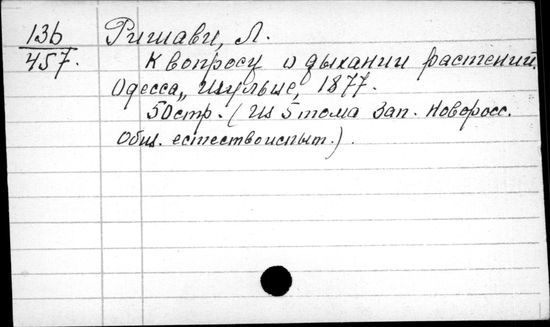 13b
457.
Ришави, Л.
К вопросу о дыхании растений.
Одесса, Шульце, 1877.
50стр. (Из 5 тома Зап. Новоросс.
Общ. естествоиспыт.).